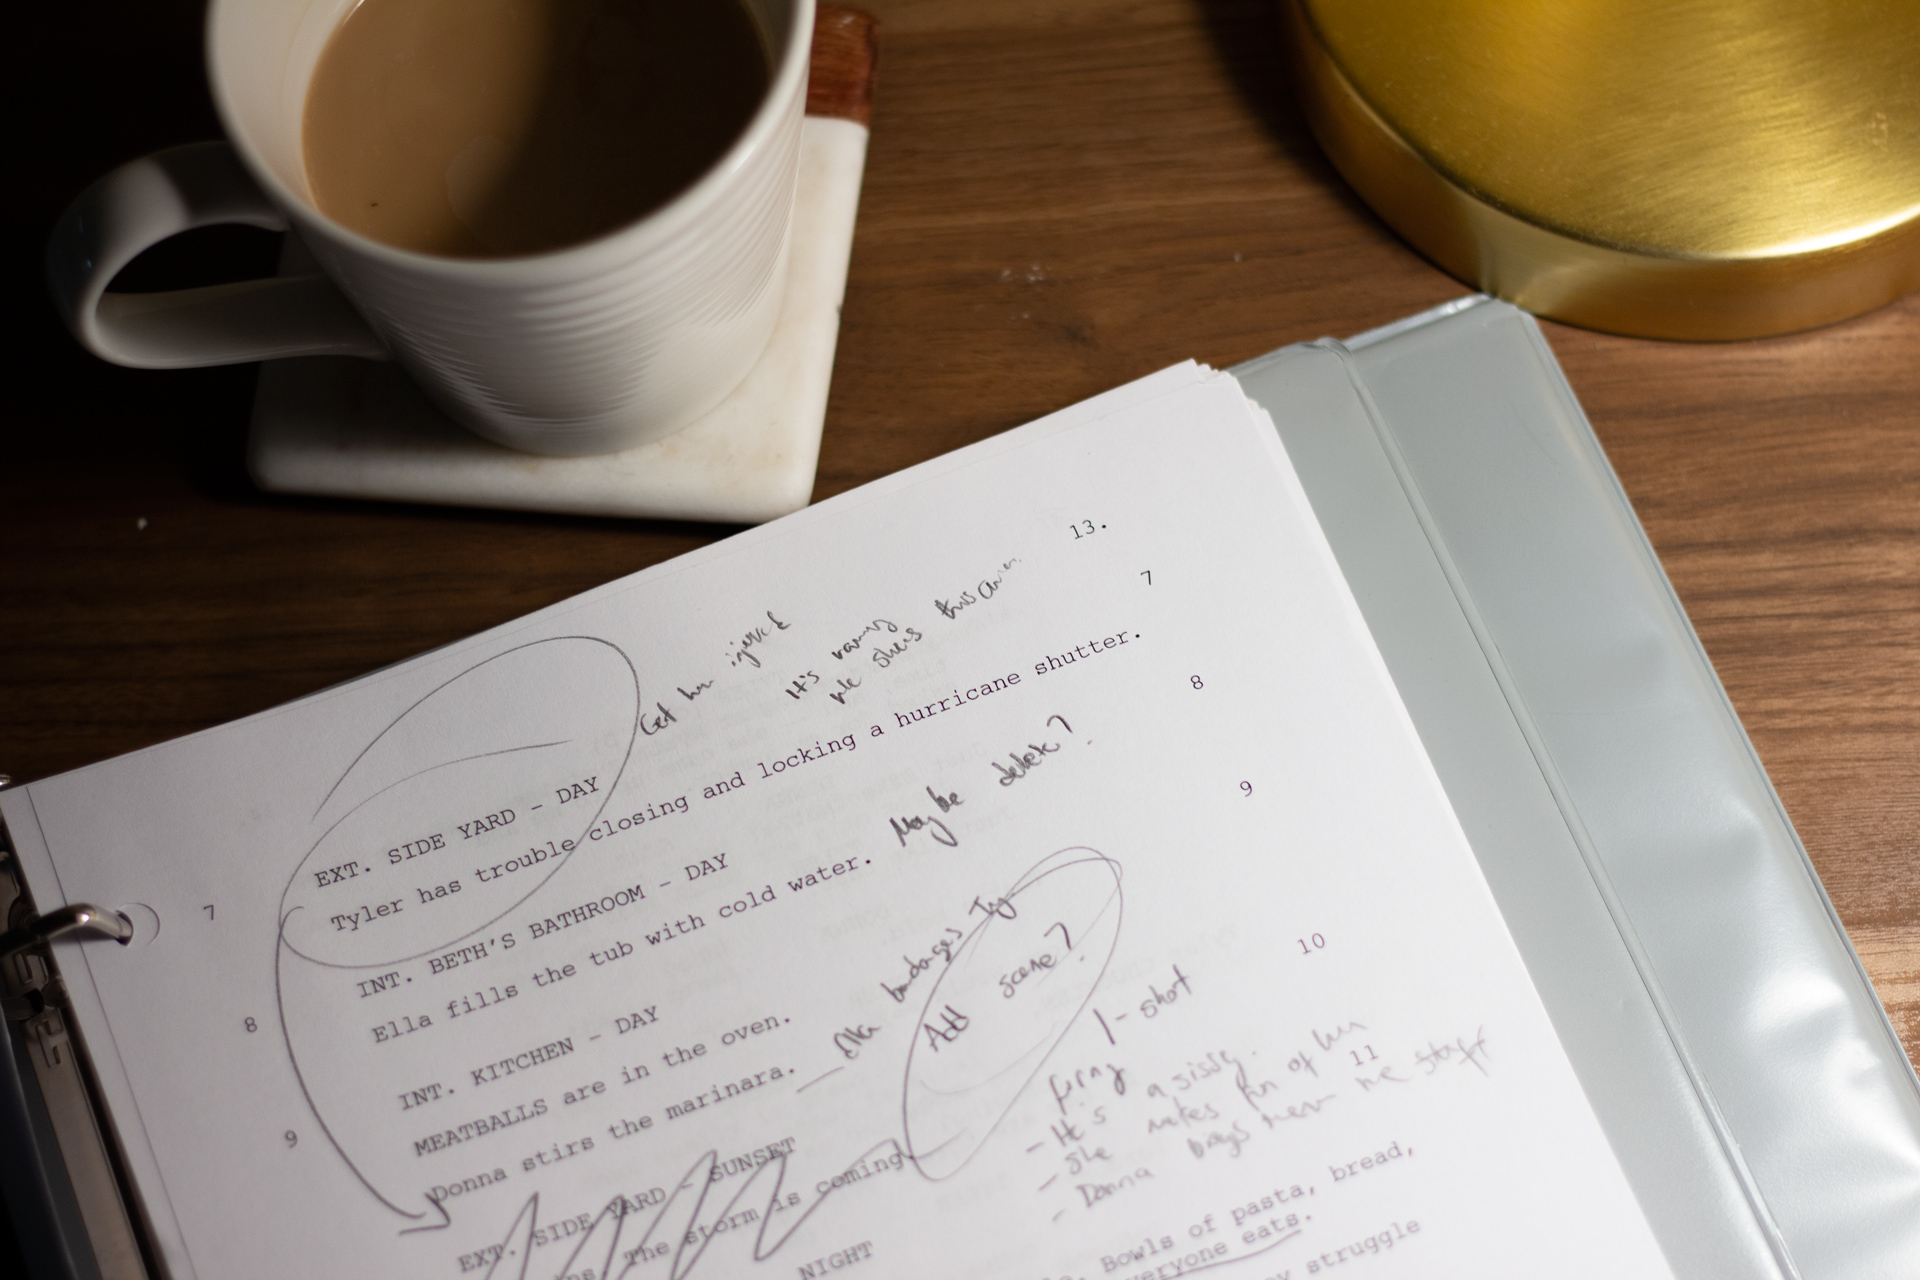 13.
Get him injured
It's raining
We shows this area.
7 EXT. SIDE YARD - DAY 7
Tyler has trouble closing and locking a hurricane shutter.
8 INT. BETH'S BATHROOM - DAY 8
Ella fills the tub with cold water. Maybe delete?
9 INT. KITCHEN - DAY 9
MEATBALLS are in the oven.
Donna stirs the marinara. Ella bandages Ty
Add scene?
1-shot
funny
- He's a sissy.
- She makes fun of him
- Donna brags
EXT. SIDE YARD - SUNSET 10
The storm is coming.
NIGHT 11
Bowls of pasta, bread,
everyone eats.
struggle